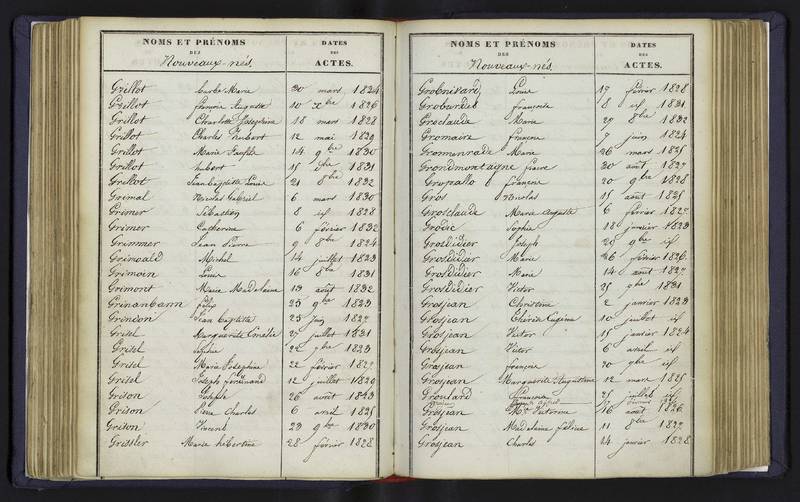 NOMS ET PRÉNOMS DATES
DES DES
Nouveaux-nés. ACTES.
Grillot Marie 30 mars 1824
Grillot Auguste 10 Xbre 1826
Grillot Charlotte Joséphine 18 mars 1828
Grillot Charles hubert 12 mai 1829
Grillot Marie 14 9bre 1830
Grillot hubert 15 1831
Grillot Jean baptiste Louis 21 8bre 1832
Grimal Nicolas Gabriel 6 mars 1830
Grimer Sébastien 8 id 1828
Grimer Catherine 6 février 1832
Grimmer Jean Pierre 9 8bre 1824
Grimwald Michel 14 juillet 1823
Grimoin Louis 16 8bre 1831
Grimont Marie Madeleine 13 août 1832
Grinanbann 25 9bre 1823
Grindon Jean baptiste 25 juin 1827
Grisel Marguerite Amélie 27 juillet 1831
Grisel Sophie 22 7bre 1823
Grisel Marie Joséphine 22 février 1827
Grisel Joseph ferdinand 12 juillet 1829
Grison Joseph 26 août 1823
Grison Pierre Charles 6 avril 1825
Grison Vincent 23 9bre 1830
Grissler Marie 28 février 1828
NOMS ET PRÉNOMS DATES
DES DES
Nouveaux-nés. ACTES.
Louise 17 février 1828
françoise 8 id 1831
Groclaude Marie 27 8bre 1832
Gromaire françoise 7 juin 1824
Marie 26 mars 1825
Grondmontaigne 30 août 1827
Gropallo françoise 20 9bre 1828
Gros Nicolas 15 août 1825
Grosclaude Marie Auguste 6 février 1827
Sophie 18 janvier 1823
Grosdidier Joseph 28 9bre id
Grosdidier Marie 26 février 1826
Grosdidier Marie 14 août 1827
Grosdidier Victor 25 1831
Grosjean Christine 2 janvier 1823
Grosjean Eugène 10 juillet id
Grosjean Victor 15 janvier 1824
Grosjean Victor 6 avril id
Grosjean françois 20 id
Grosjean Marguerite Augustine 12 mars 1825
françoise 25 juillet id
Grosjean Victorine 16 août 1826
Grosjean Madeleine 11 8bre 1827
Grosjean Charles 24 janvier 1828